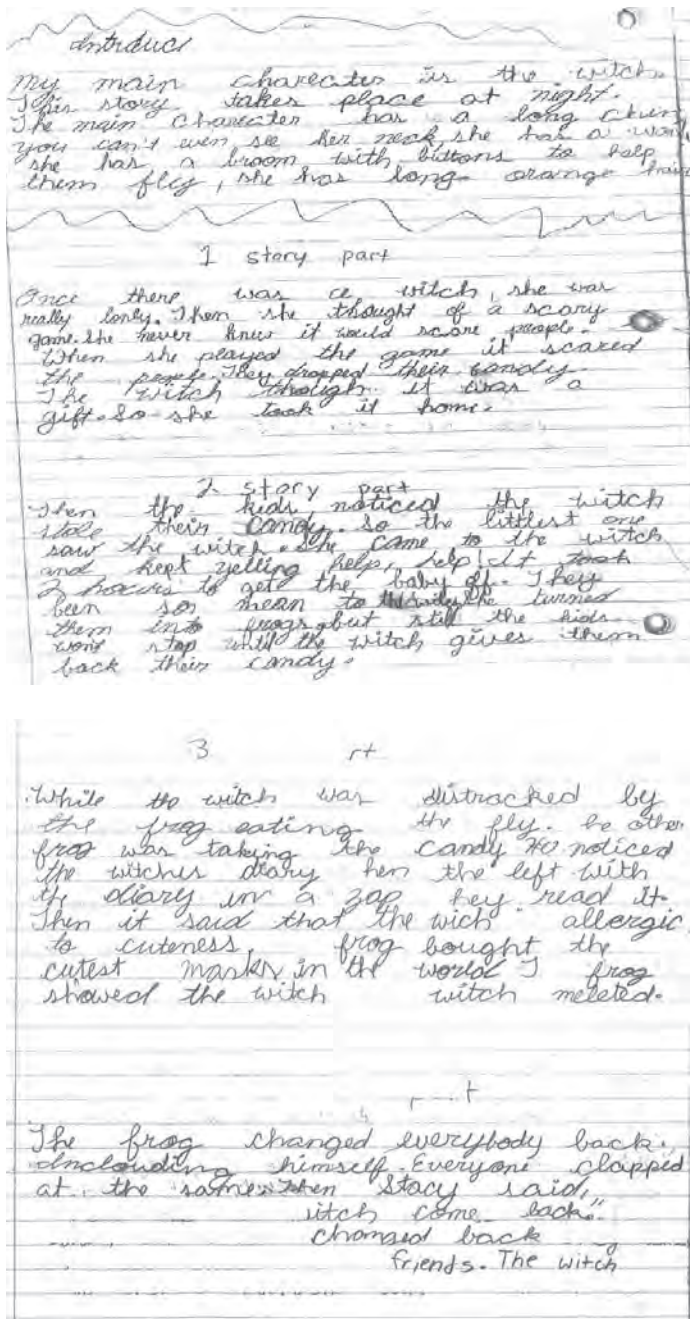 Introduct
My main chareater is the witch.
This story takes place at night.
The main chareater has a long chin
you can't even see her neck, she has a
she has a broom with buttons to help
them fly, she has long orange hair
1 story part
Once there was a witch, she was
really lonly. Then she thought of a scary
game. She never knew it would scare people.
When she played the game it scared
the people. They dropped their candy.
The witch through it was a
gift. So she took it home.
2 story part
Then the kids noticed the witch
stole their candy. So the littlest one
saw the witch. She came to the witch
and kept yelling help, help! It took
2 hours to get the baby off. They
been so mean to she turned
them into frogs, but still the kids
wont stop until the witch gives them
back their candy.
3 rt
While the witch was distracked by
the frog eating the fly. he other
frog was taking the candy He noticed
the witches diary hen the left with
the diary in a zap hey read it.
Then it said that the wich allergic
to cuteness. frog bought the
cutest masks in the world frog
showed the witch witch meleted.
4 r t
The frog changed everybody back.
Inclouding himself. Everyone clapped
at the same. Then Stacy said,
itch come back."
changed back
friends. The witch